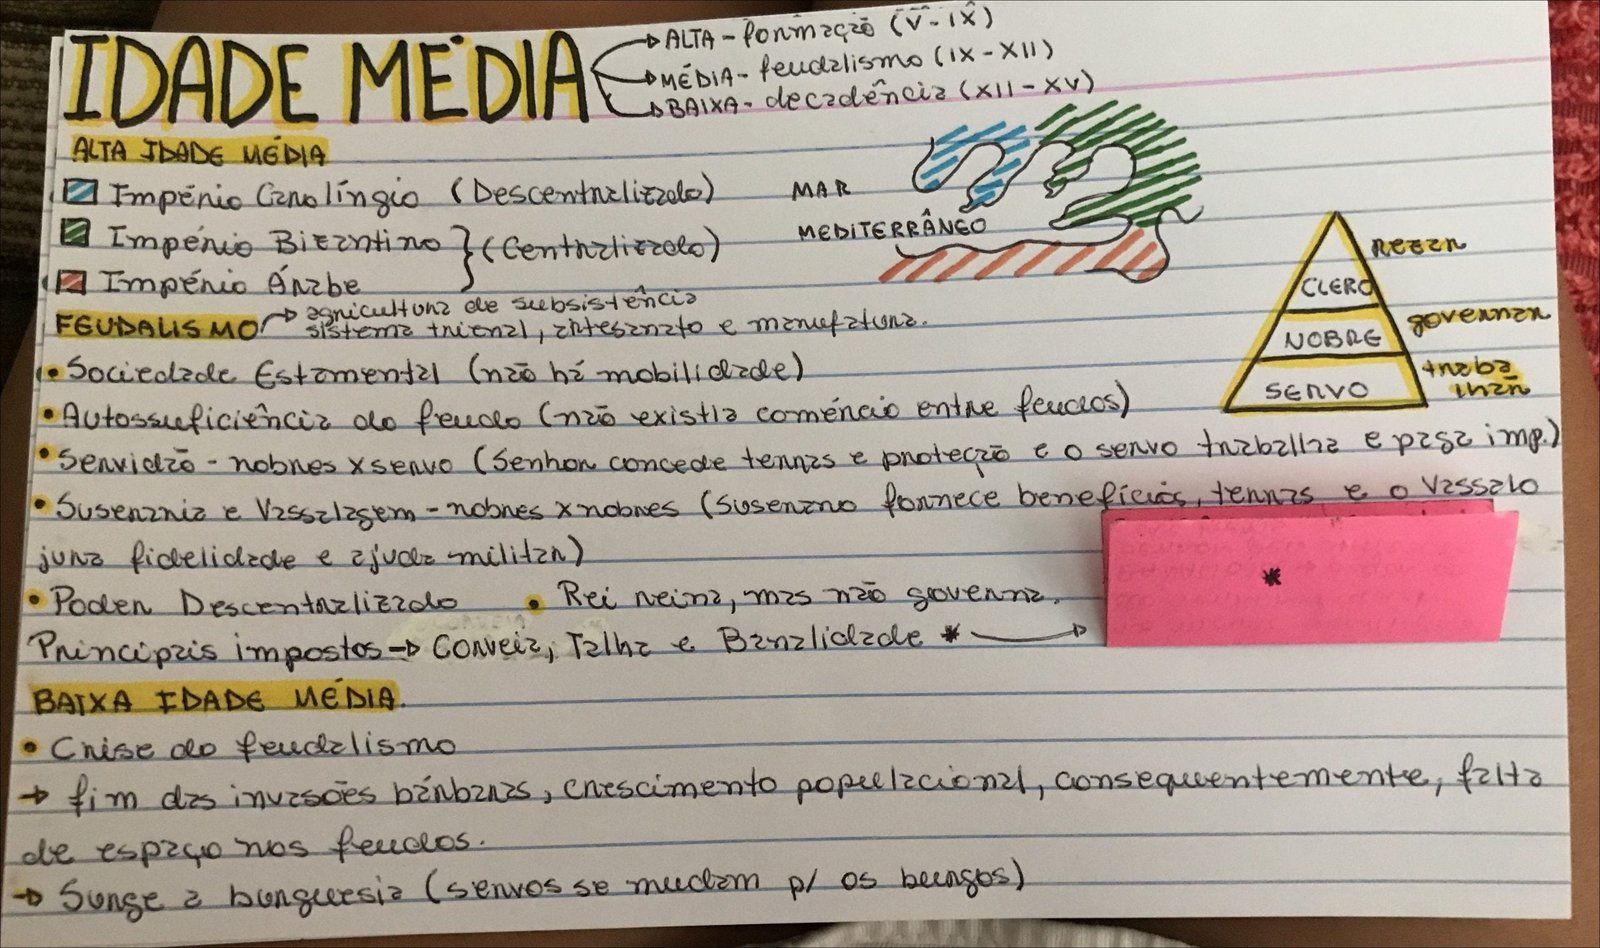 IDADE MÉDIA
ALTA - formação (V - IX)
MÉDIA - feudalismo (IX - XII)
BAIXA - decadência (XII - XV)
ALTA IDADE MÉDIA
Império Carolíngio (Descentralizado)
Império Bizantino } (Centralizado)
Império Árabe
MAR
MEDITERRÂNEO
CLERO
REZAR
NOBRE
governar
SERVO
traba
lhar
FEUDALISMO → agricultura de subsistência
sistema trienal, artesanato e manufatura.
• Sociedade Estamental (não há mobilidade)
• Autossuficiência do feudo (não existia comércio entre feudos)
• Servidão - nobres x servo (Senhor concede terras e proteção e o servo trabalha e paga imp.)
• Suserania e Vassalagem - nobres x nobres (suserano fornece benefícios, terras e o vassalo
jura fidelidade e ajuda militar)
• Poder Descentralizado • Rei reina, mas não governa.
Principais impostos → Corveia, Talha e Banalidade * →
*
BAIXA IDADE MÉDIA.
• Crise do feudalismo
→ fim das invasões bárbaras, crescimento populacional, consequentemente, falta
de espaço nos feudos.
→ Surge a burguesia (servos se mudam p/ os burgos)